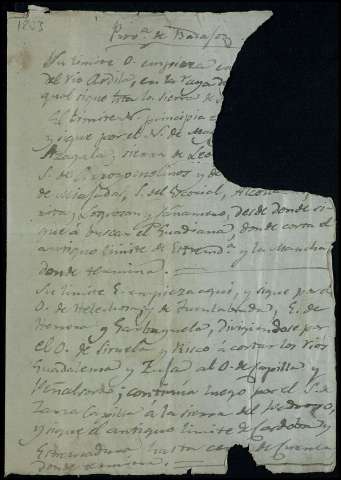 1833
Prov.ª de Badajoz
Su limite O. empieza
del rio Ardila, en la raya de
qual sigue toda la sierra de
El limite N. principia
y sigue por el N. de
Azagala, sierra de
S. de Arroyomolinos y de
de Miajadas, S. del Escorial,
Logrosan y Cañamero, desde donde si-
gue á buscar el Guadiana, donde corta el
antiguo limite de Estremd.ª y la Mancha
donde termina.
Su limite E. empieza aqui, y sigue por el
O. de Helechosa y de Fuenlabrada, E. de
Herrera y Garbayuela, dividiendose por
el O. de Siruela y Risco á cortar los rios
Guadalema y Zuja al O. de Capilla y
Peñalsordo; continúa luego por el S. de
Zarza Capilla á la sierra del Pedroso,
y sigue el antiguo limite de Cordoba y
Estremadura hasta cerca de
donde termina.